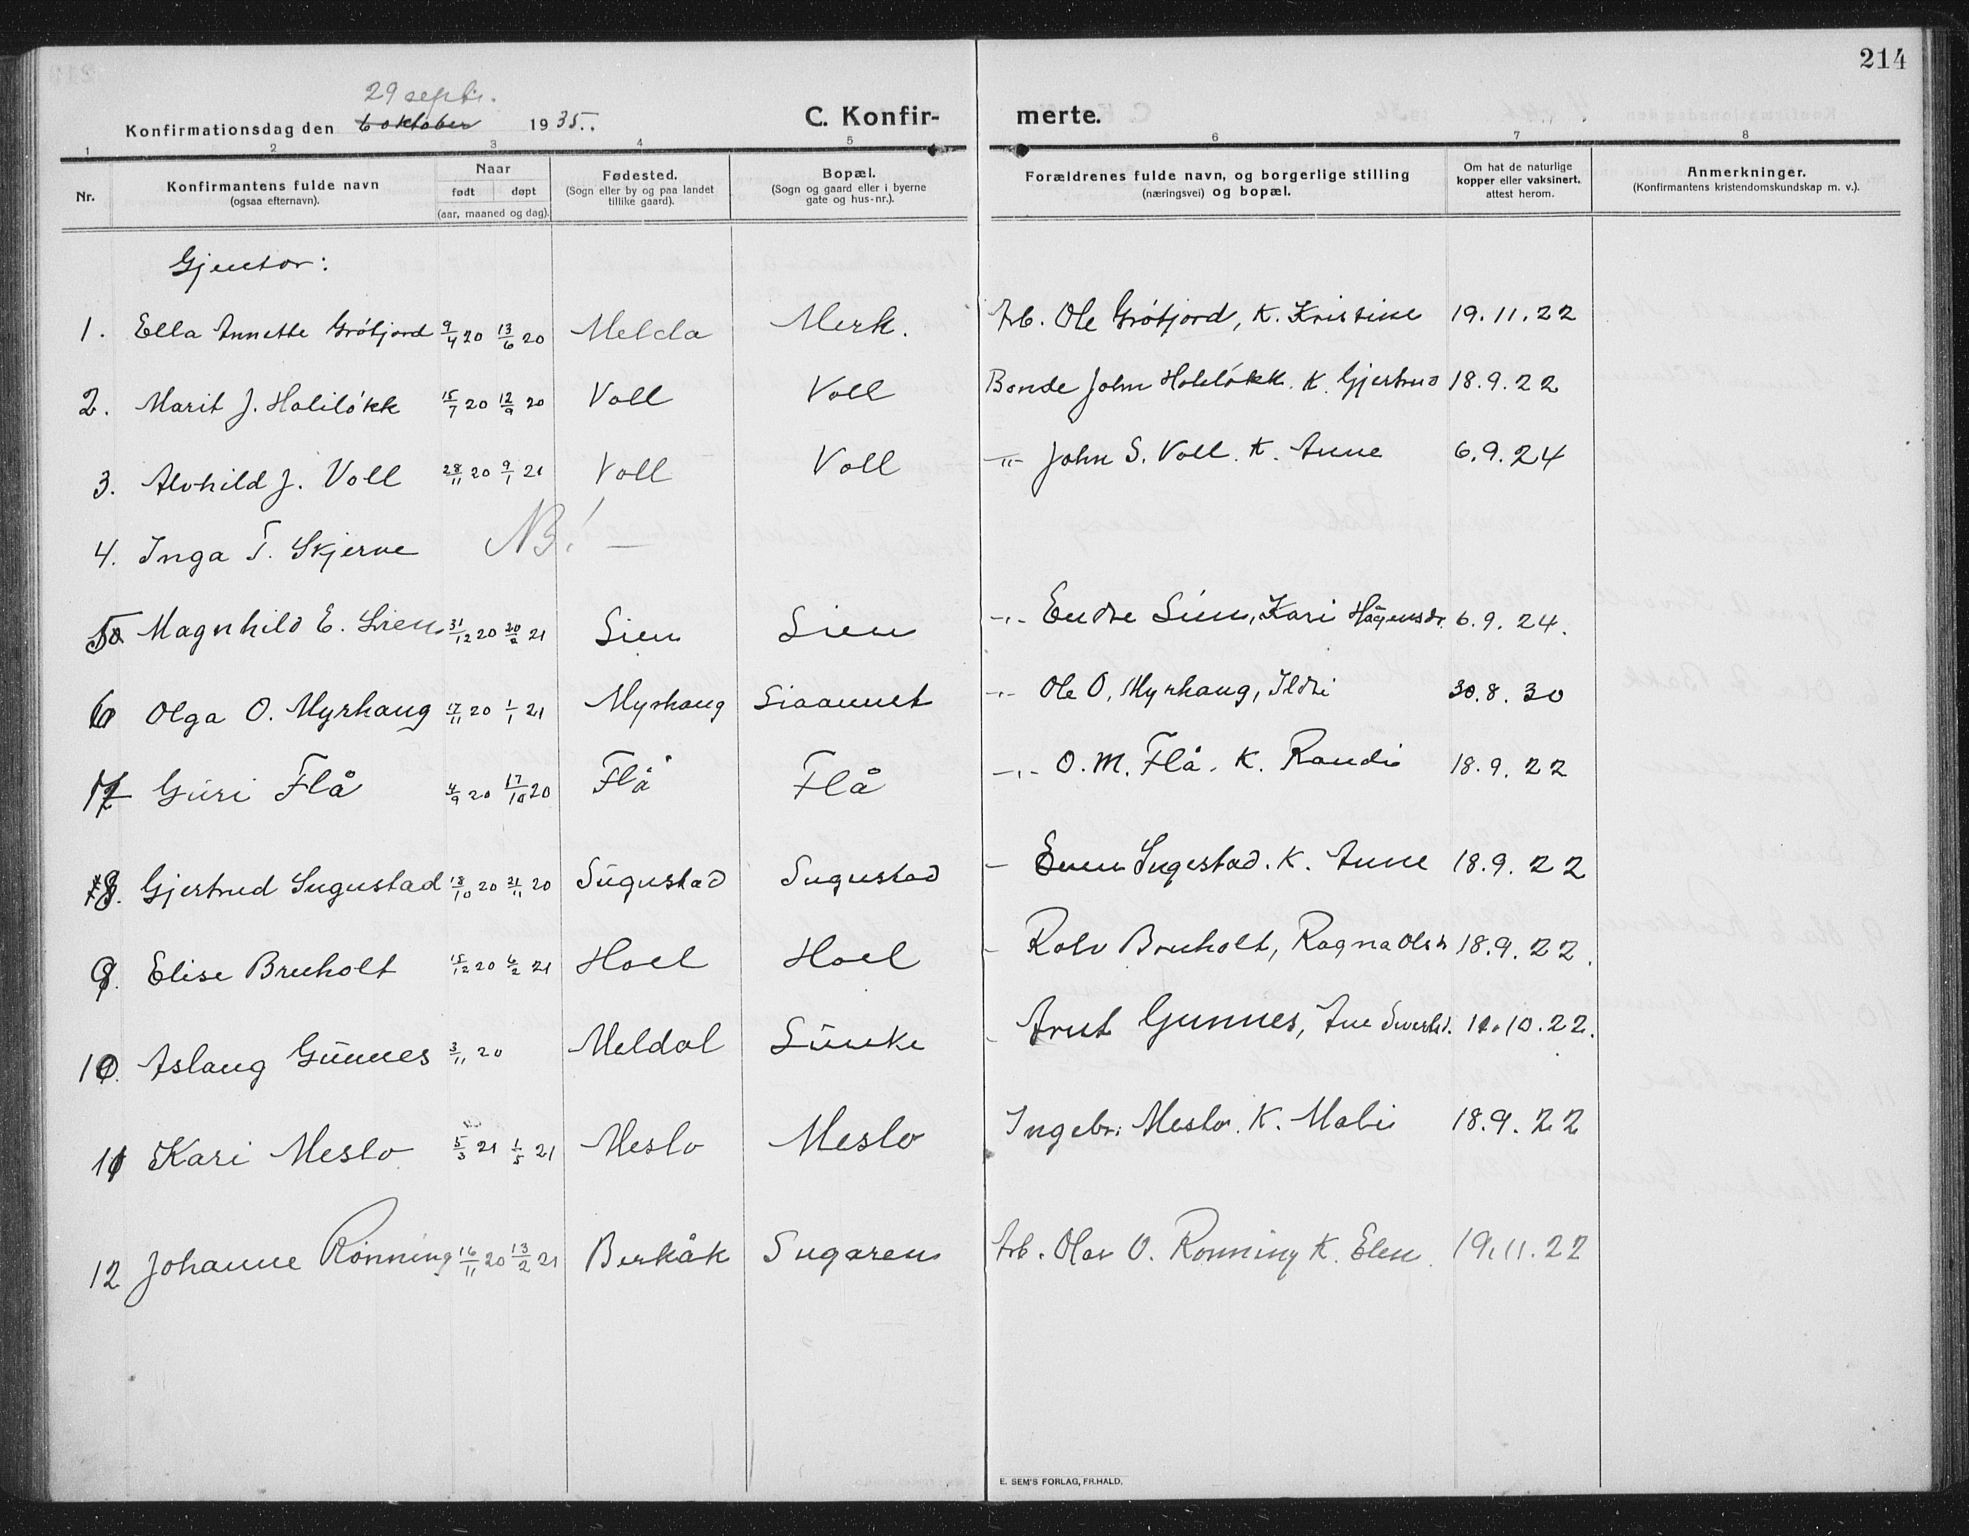 214
29 septbr.
Konfirmationsdag den 6 oktober 1935.
C. Konfirmerte.
1 2 3 4 5 6 7 8
Nr.
Konfirmantens fulde navn
(ogsaa efternavn).
Naar
født døpt
(aar, maaned og dag).
Fødested.
(Sogn eller by og paa landet
tillike gaard).
Bopæl.
(Sogn og gaard eller i byerne
gate og hus-nr.).
Forældrenes fulde navn, og borgerlige stilling
(næringsvei) og bopæl.
Om hat de naturlige
kopper eller vaksinert,
attest herom.
Anmerkninger.
(Konfirmantens kristendomskundskap m. v.).
Gjentor:
1. Ella Annette Grötjord 9/4 20 13/6 20 Melda Merk. Arb. Ole Grötjord, K. Kristine 19.11.22
2. Marit J. Holilökk 15/7 20 12/9 20 Voll Voll Bonde John Holilökk. K. Gjertrud 18.9.22
3. Alvhild J. Voll 28/11 20 9/1 21 Voll Voll -"- John S. Voll. K. Anne 6.9.24
4. Inga T. Skjerve NB! —
5 Magnhild E. Lien 31/12 20 20/2 21 Lien Lien -"- Endre Lien, Kari Hågensdr. 6.9.24.
6 Olga O. Myrhaug 17/11 20 1/1 21 Myrhaug Liaaunet -"- Ole O. Myrhaug, Ildri 30.8.30
7 Guri Flå 4/9 20 17/10 20 Flå Flå -"- O. M. Flå. K. Randi 18.9.22
8. Gjertrud Sugustad 18/10 20 21/11 20 Sugustad Sugustad - Even Sugestad. K. Anne 18.9.22
9. Elise Bruholt 15/12 20 6/2 21 Hoel Hoel - Rolv Bruholt, Ragna Olsdr 18.9.22.
10. Aslaug Gunnes 3/11 20 Meldal Lünke - Arnt Gunnes, Ane 11.10.22.
11 Kari Meslo 5/3 21 1/5 21 Meslo Meslo Ingebr. Meslo. K. Mali 18.9.22
12 Johanne Rönning 16/11 20 13/2 21 Berkåk Sugaren Arb. Olav O. Rönning K. Elen. 19.11.22
E. SEM'S FORLAG, FR.HALD.